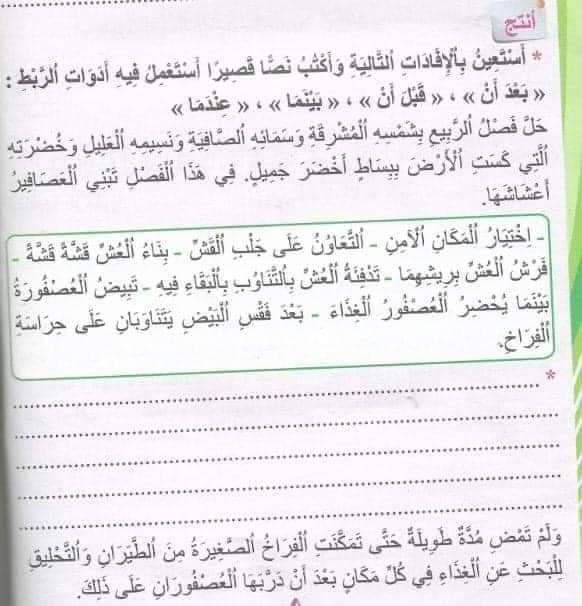 أنتج
* أستعين بالإفادات التالية وأكتب نصا قصيرا أستعمل فيه أدوات الربط :
« بعد أن » ، « قبل أن » ، « بينما » ، « عندما »
حل فصل الربيع بشمسه المشرقة وسمائه الصافية ونسيمه العليل وخضرته
التي كست الأرض ببساط أخضر جميل. في هذا الفصل تبني العصافير
أعشاشها.
- إختيار المكان الآمن - التعاون على جلب القش - بناء العش قشة قشة -
فرش العش بريشهما - تدفئة العش بالتناوب بالبقاء فيه - تبيض العصفورة
بينما يحضر العصفور الغذاء - بعد فقس البيض يتناوبان على حراسة
الفراخ.
*
ولم تمض مدة طويلة حتى تمكنت الفراخ الصغيرة من الطيران والتحليق
للبحث عن الغذاء في كل مكان بعد أن دربها العصفوران على ذلك.